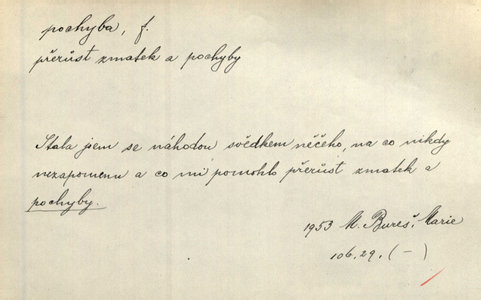 pochyba, f.
přerůst zmatek a pochyby
Stala jsem se náhodou svědkem něčeho, na co nikdy
nezapomenu a co mi pomohlo přerůst zmatek a
pochyby.
1953 M. Bureš, Marie
106, 29. (-)